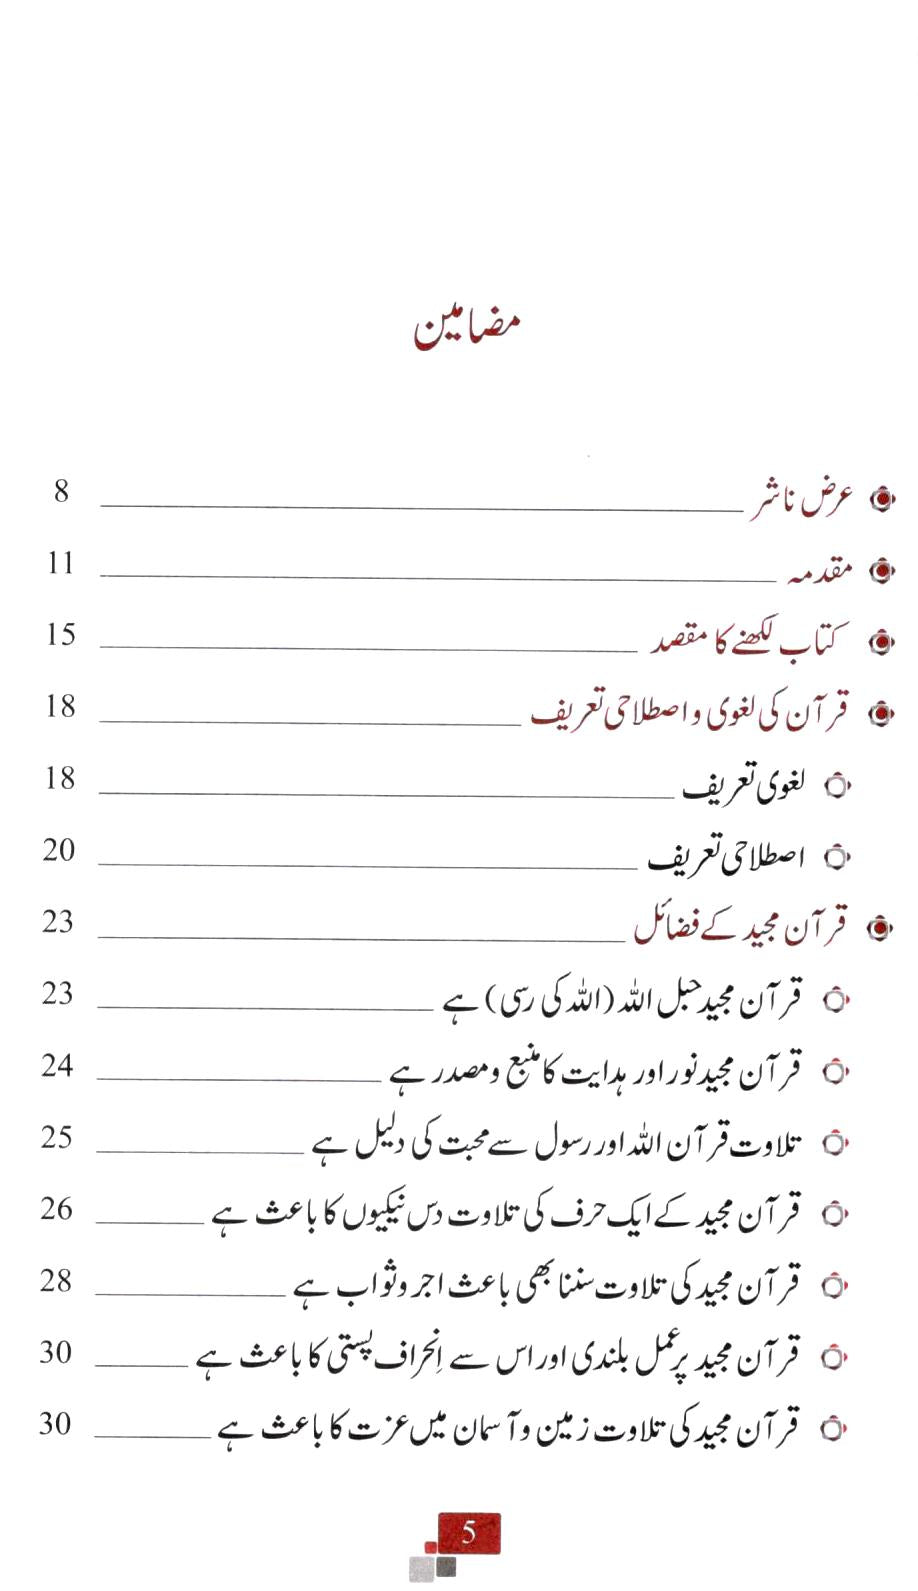 مضامین
عرض ناشر 8
مقدمہ 11
کتاب لکھنے کا مقصد 15
قرآن کی لغوی و اصطلاحی تعریف 18
لغوی تعریف 18
اصطلاحی تعریف 20
قرآن مجید کے فضائل 23
قرآن مجید حبل اللہ (اللہ کی رسی) ہے 23
قرآن مجید نور اور ہدایت کا منبع و مصدر ہے 24
تلاوت قرآن اللہ اور رسول سے محبت کی دلیل ہے 25
قرآن مجید کے ایک حرف کی تلاوت دس نیکیوں کا باعث ہے 26
قرآن مجید کی تلاوت سننا بھی باعث اجر و ثواب ہے 28
قرآن مجید پر عمل بلندی اور اس سے اِنحراف پستی کا باعث ہے 30
قرآن مجید کی تلاوت زمین و آسمان میں عزت کا باعث ہے 30
5